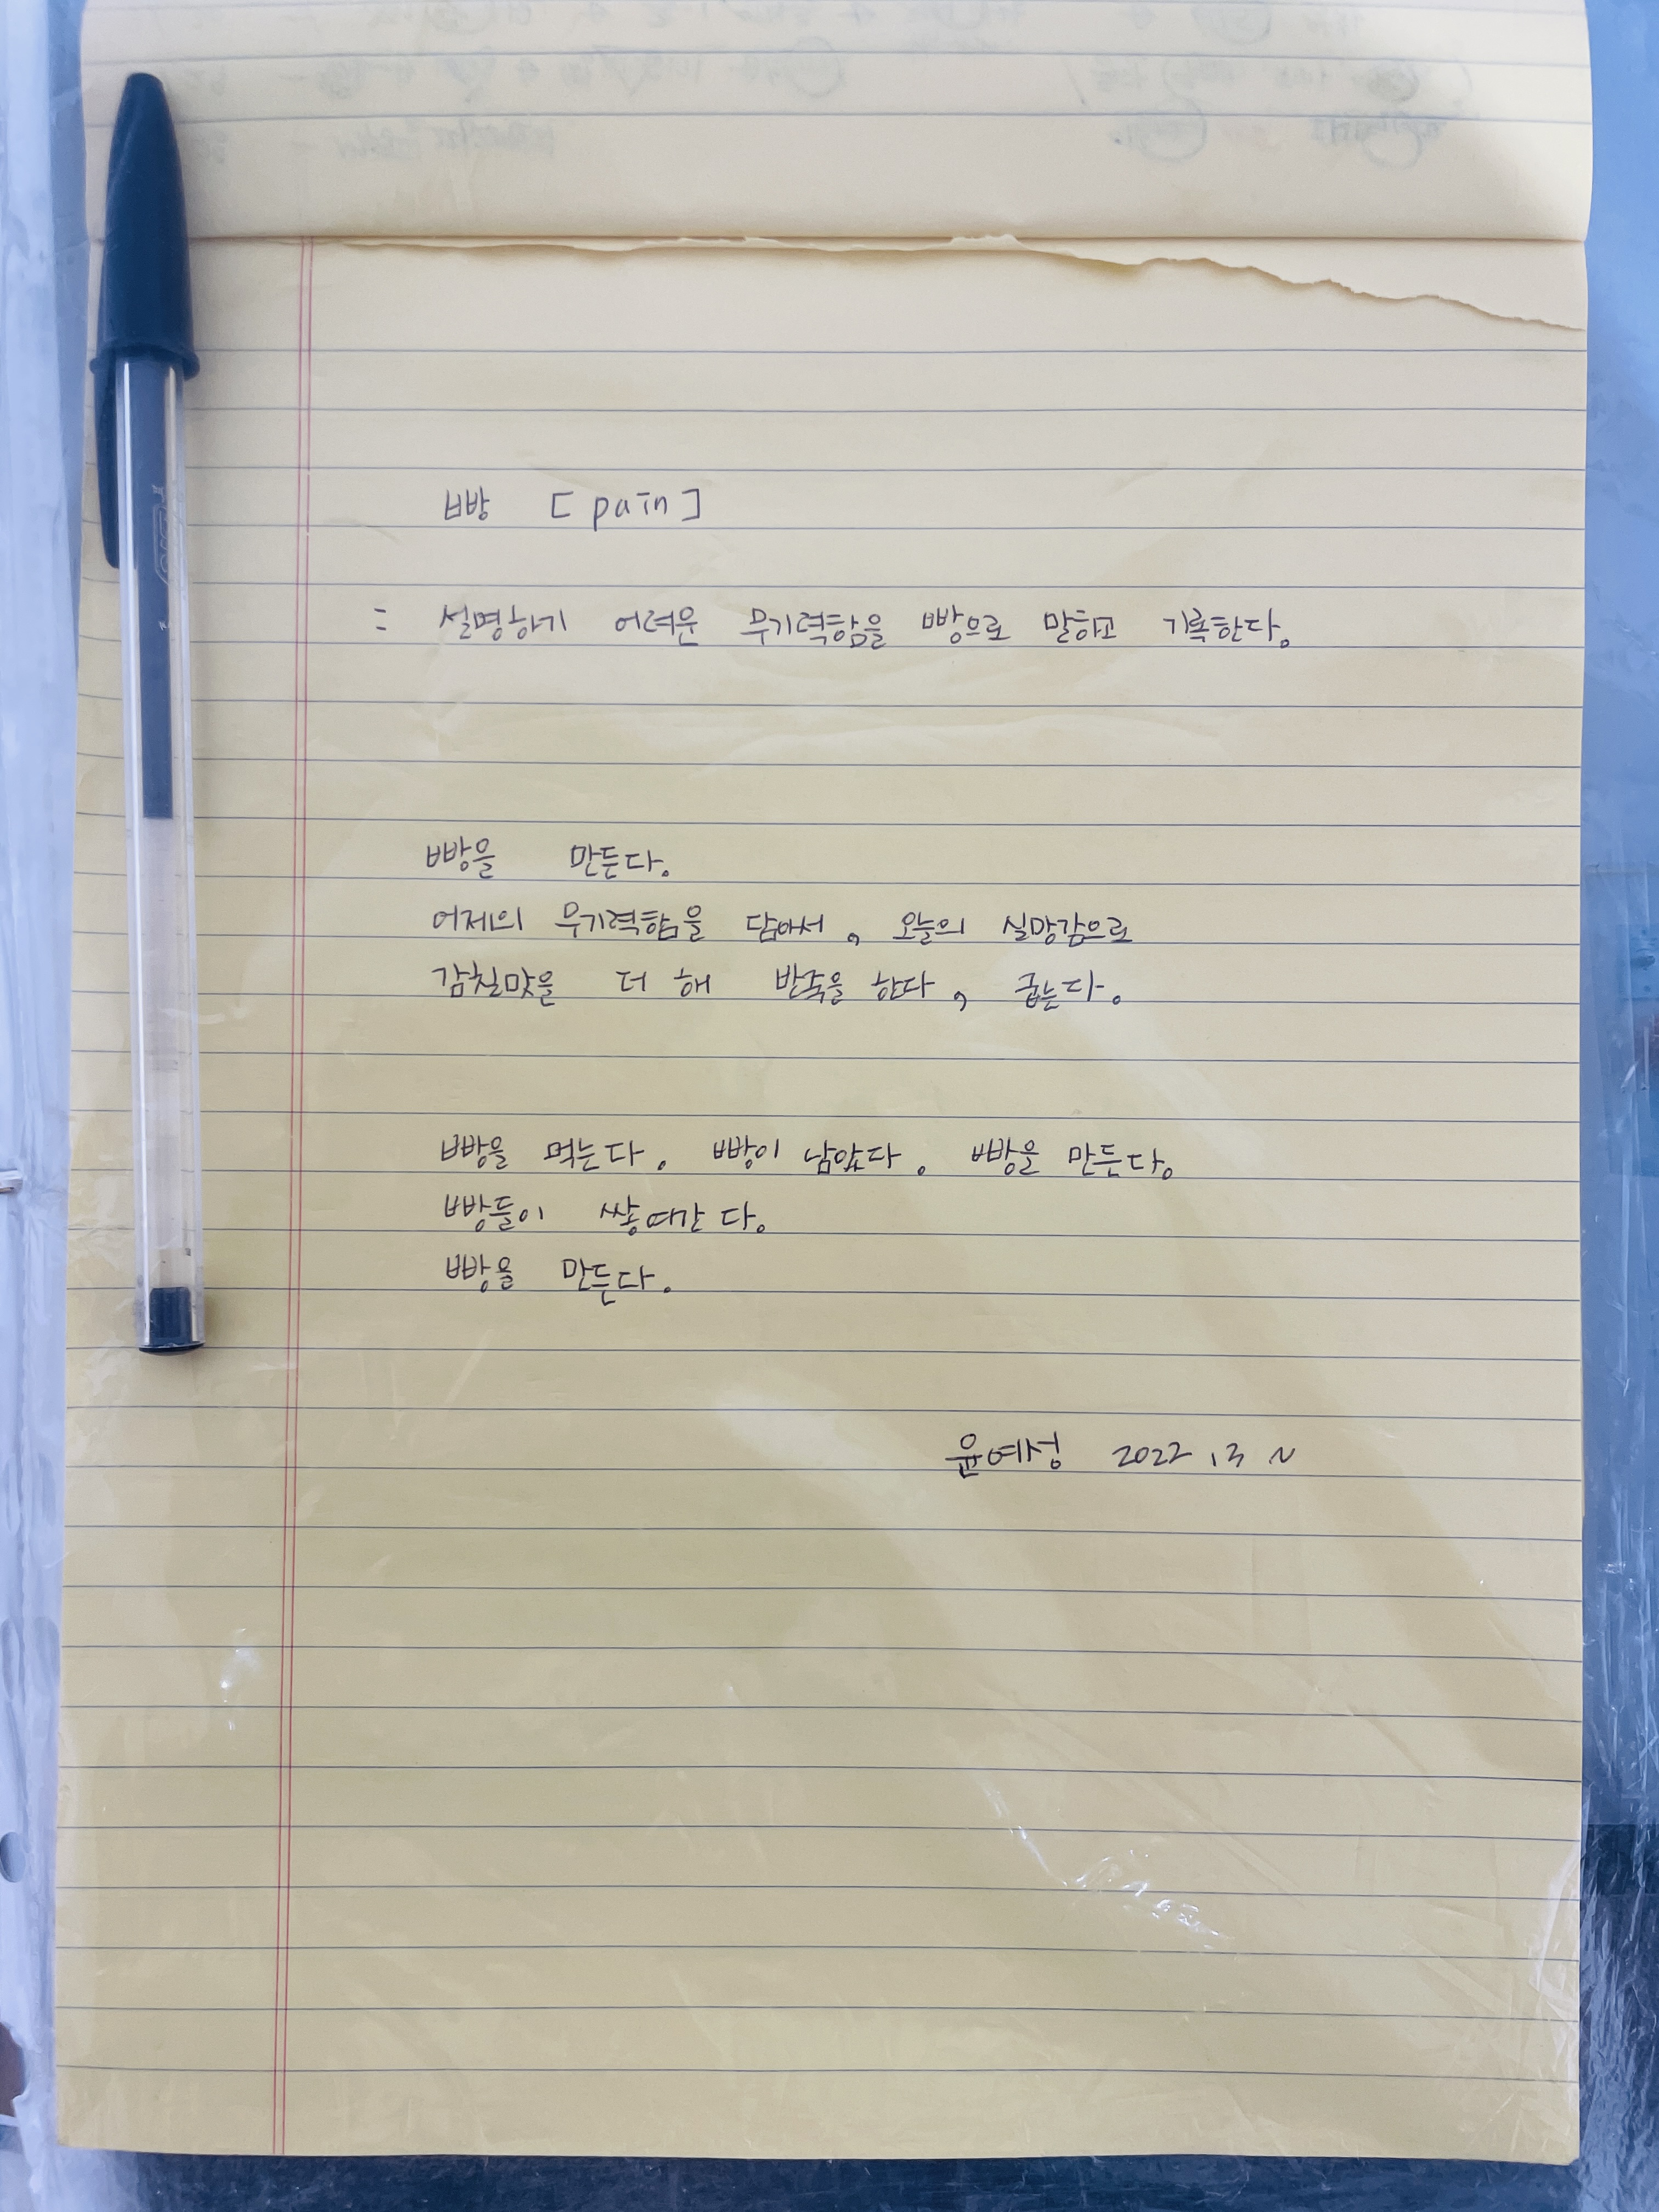 빵 [pain]
= 설명하기 어려운 무기력함을 빵으로 말하고 기록한다.
빵을 만든다.
어제의 무기력함을 담아서, 오늘의 실망감으로
감칠맛을 더 해 반죽을 한다, 굽는다.
빵을 먹는다. 빵이 남았다. 빵을 만든다.
빵들이 쌓여간다.
빵을 만든다.
윤예성 2022.3 ~